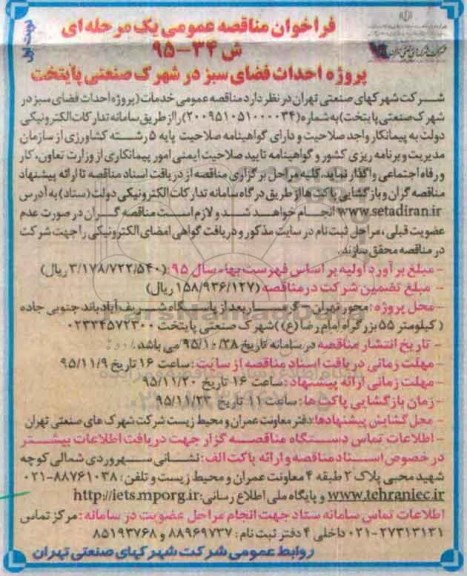 نوبت اول
فراخوان مناقصه عمومی یک مرحله ای
ش ۳۴-۹۵
پروژه احداث فضای سبز در شهرک صنعتی پایتخت
شرکت شهرکهای صنعتی تهران در نظر دارد مناقصه عمومی خدمات (پروژه احداث فضای سبز در
شهرک صنعتی پایتخت) به شماره (۲۰۰۹۵۱۰۵۱۰۰۰۰۳۴) را از طریق سامانه تدارکات الکترونیکی
دولت به پیمانکار واجد صلاحیت و دارای گواهینامه صلاحیت پایه ۵ رشته کشاورزی از سازمان
مدیریت و برنامه ریزی کشور و گواهینامه تایید صلاحیت ایمنی امور پیمانکاری از وزارت تعاون، کار
و رفاه اجتماعی واگذار نماید. کلیه مراحل برگزاری مناقصه از دریافت اسناد مناقصه تا ارائه پیشنهاد
مناقصه گران و بازگشایی پاکت ها از طریق درگاه سامانه تدارکات الکترونیکی دولت (ستاد) به آدرس
www.setadiran.ir انجام خواهد شد و لازم است مناقصه گران در صورت عدم
عضویت قبلی، مراحل ثبت نام در سایت مذکور و دریافت گواهی امضای الکترونیکی را جهت شرکت
در مناقصه محقق سازند.
- مبلغ برآورد اولیه بر اساس فهرست بهاء سال ۹۵: (۳/۱۷۸/۷۲۲/۵۴۰ ریال)
- مبلغ تضمین شرکت در مناقصه (۱۵۸/۹۳۶/۱۲۷ ریال)
محل پروژه: محور تهران - گرمسار بعد از پاسگاه شریف آباد باند جنوبی جاده
(کیلومتر ۵۵ بزرگراه امام رضا (ع)) شهرک صنعتی پایتخت ۰۲۳۳۴۵۷۲۳۰۰
- تاریخ انتشار مناقصه در سامانه تاریخ ۹۵/۱۰/۲۸ می باشد.
مهلت زمانی دریافت اسناد مناقصه از سایت: ساعت ۱۶ تاریخ ۹۵/۱۱/۹
- مهلت زمانی ارائه پیشنهاد: ساعت ۱۶ تاریخ ۹۵/۱۱/۲۰
- زمان بازگشایی پاکت ها: ساعت ۱۱ تاریخ ۹۵/۱۱/۲۳
محل گشایش پیشنهادها: دفتر معاونت عمران و محیط زیست شرکت شهرک های صنعتی تهران
- اطلاعات تماس دستگاه مناقصه گزار جهت دریافت اطلاعات بیشتر
در خصوص اسناد مناقصه و ارائه پاکت الف: نشانی سهروردی شمالی کوچه
شهید محبی پلاک ۲ طبقه ۴ معاونت عمران و محیط زیست و تلفن: ۸۸۷۶۱۰۳۸-۰۲۱
www.tehraniec.ir و پایگاه ملی اطلاع رسانی: http://iets.mporg.ir
اطلاعات تماس سامانه ستاد جهت انجام مراحل عضویت در سامانه: مرکز تماس
۰۲۱-۲۷۳۱۳۱۳۱ داخلی ۴ دفتر ثبت نام: ۸۸۹۶۹۷۳۷ و ۸۵۱۹۳۷۶۸
روابط عمومی شرکت شهرکهای صنعتی تهران